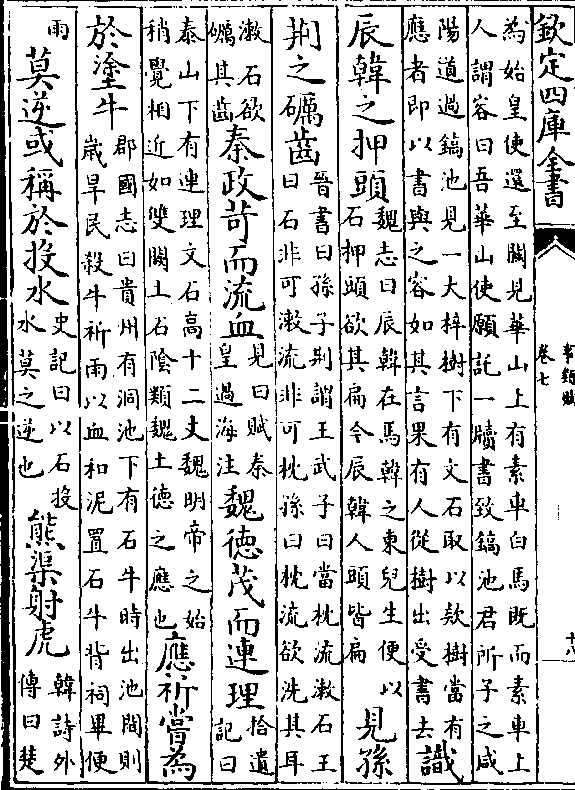 欽定四庫全書
事類賦
卷七
為始皇使還至關見華山上有素車白馬既而素車上
人謂容曰吾華山使願託一牘書致鎬池君所子之咸
陽道過鎬池見一大梓樹下有文石取以欵樹當有
應者即以書與之容如其言果有人從樹出受書去
識
辰韓之押頭
魏志曰辰韓在馬韓之東兒生便以
石押頭欲其扁今辰韓人頭皆扁
見孫
荆之礪齒
晉書曰孫子荆謂王武子曰當枕流漱石王
曰石非可漱流非可枕孫曰枕流欲洗其耳
漱石欲
礪其齒
秦政苛而流血
見曰賦秦
皇過海注
魏徳茂而連理
拾遺
記曰
泰山下有連理文石高十二丈魏明帝之始
稍覺相近如雙闕土石隂類魏土徳之應也
應祈嘗為
於塗牛
郡國志曰貴州有洞池下有石牛時出池間則
嵗旱民殺牛祈雨以血和泥置石牛背祠畢便
雨
莫逆或稱於投水
史記曰以石投
水莫之逆也
熊渠射虎
韓詩外
傳曰楚